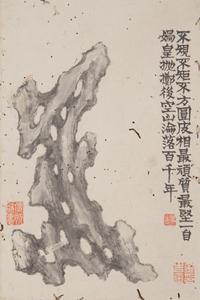 不規不矩不方圓皮相最頑質最堅一自
媧皇拋擲後空山淪落百千年